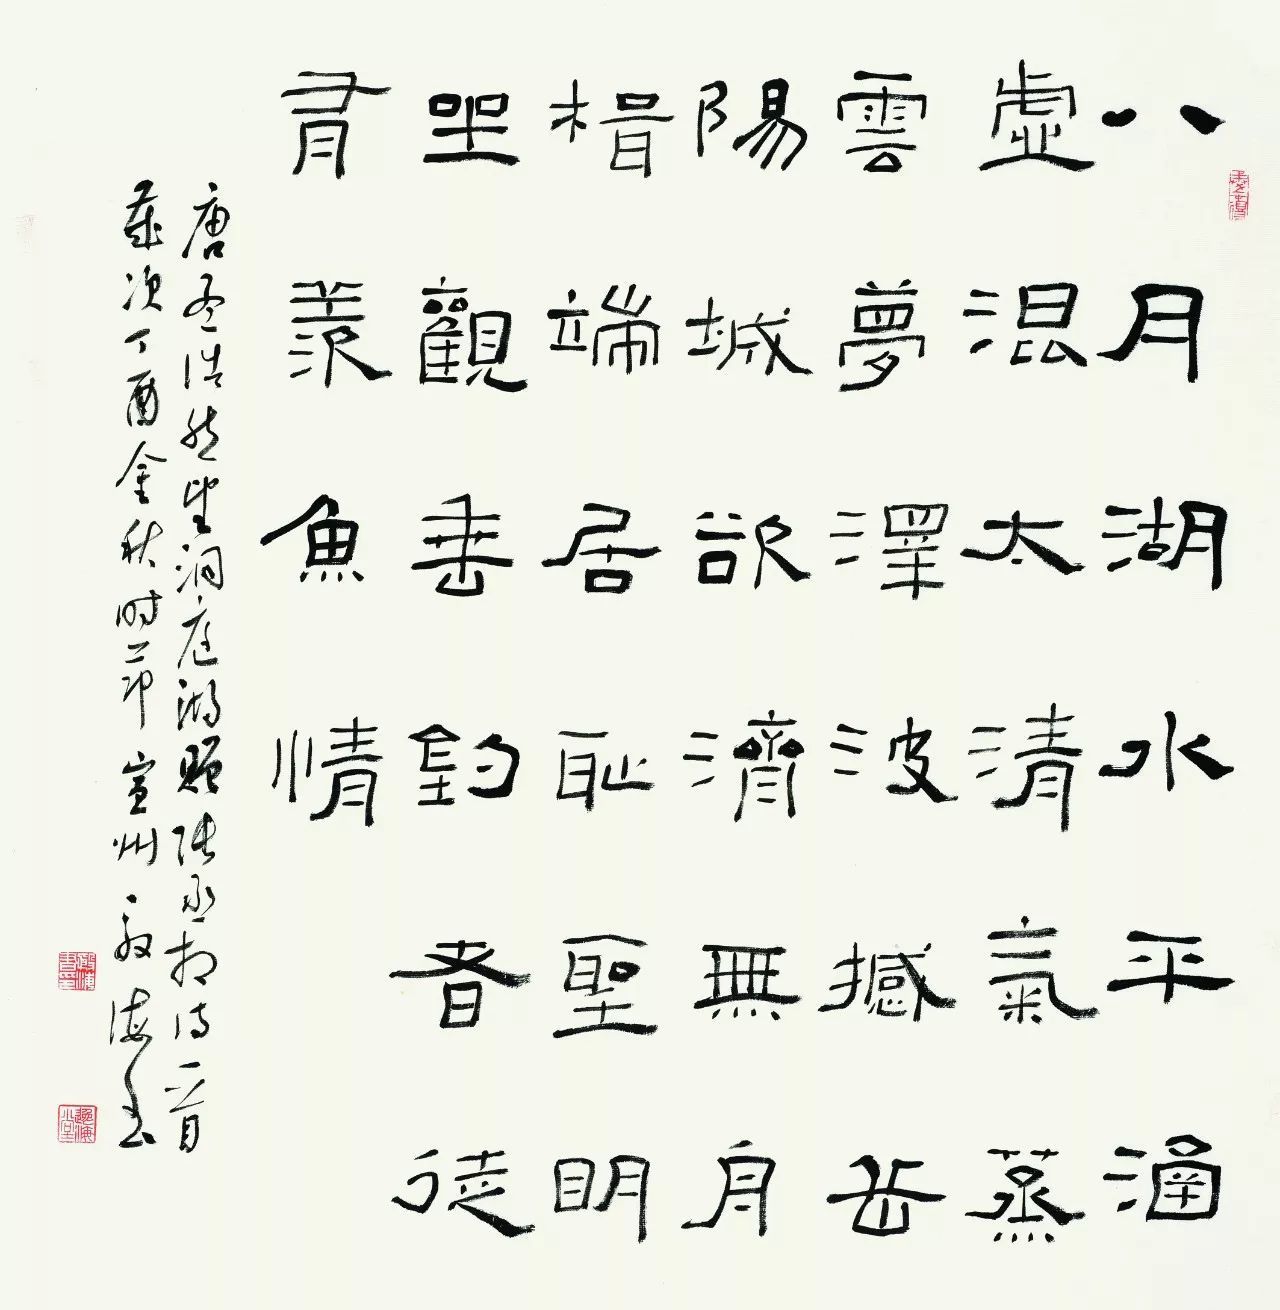 八月湖水平涵
虚混太清氣蒸
雲夢澤波撼岳
陽城欲濟無舟
楫端居耻聖明
坐觀垂釣者徒
有羨魚情
唐孟浩然望洞庭湖贈张丞相诗一首
歲次丁酉金秋时節宣州海书